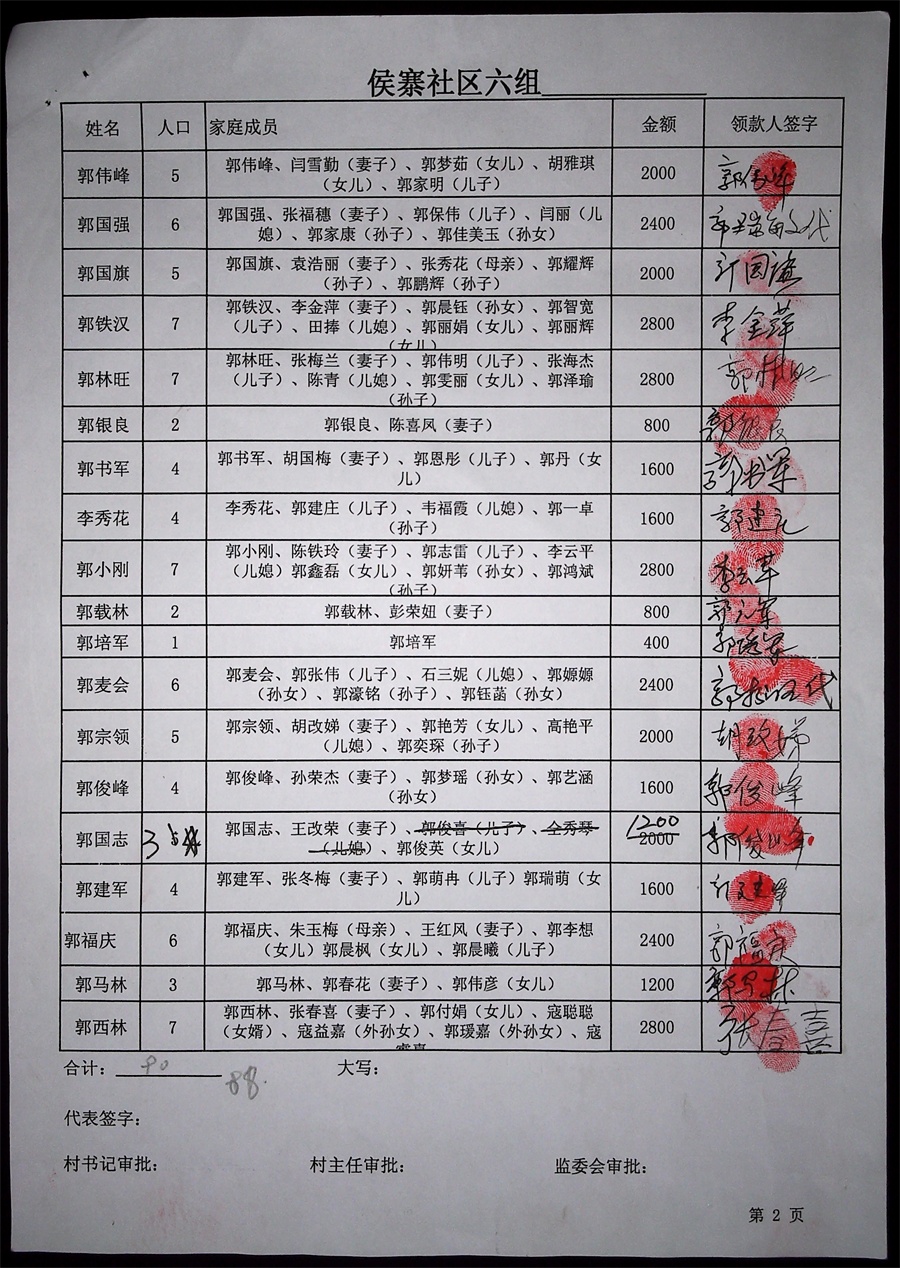 侯寨社区六组
姓名 人口 家庭成员 金额 领款人签字
郭伟峰 5 郭伟峰、闫雪勤（妻子）、郭梦茹（女儿）、胡雅琪
（女儿）、郭家明（儿子） 2000 郭伟峰
郭国强 6 郭国强、张福穗（妻子）、郭保伟（儿子）、闫丽（儿
媳）、郭家康（孙子）、郭佳美玉（孙女） 2400
郭国旗 5 郭国旗、袁浩丽（妻子）、张秀花（母亲）、郭耀辉
（孙子）、郭鹏辉（孙子） 2000
郭铁汉 7 郭铁汉、李金萍（妻子）、郭晨钰（孙女）、郭智宽
（儿子）、田捧（儿媳）、郭丽娟（女儿）、郭丽辉
（女儿） 2800 李金萍
郭林旺 7 郭林旺、张梅兰（妻子）、郭伟明（儿子）、张海杰
（儿子）、陈青（儿媳）、郭雯丽（女儿）、郭泽瑜
（孙子） 2800 郭林旺
郭银良 2 郭银良、陈喜凤（妻子） 800 郭银良
郭书军 4 郭书军、胡国梅（妻子）、郭恩彤（儿子）、郭丹（女
儿） 1600 郭书军
李秀花 4 李秀花、郭建庄（儿子）、韦福霞（儿媳）、郭一卓
（孙子） 1600
郭小刚 7 郭小刚、陈铁玲（妻子）、郭志雷（儿子）、李云平
（儿媳）郭鑫磊（女儿）、郭妍苇（孙女）、郭鸿斌
（孙子） 2800
郭载林 2 郭载林、彭荣妞（妻子） 800
郭培军 1 郭培军 400 郭培军
郭麦会 6 郭麦会、郭张伟（儿子）、石三妮（儿媳）、郭嫄嫄
（孙女）、郭濠铭（孙子）、郭钰菡（孙女） 2400
郭宗领 5 郭宗领、胡改娣（妻子）、郭艳芳（女儿）、高艳平
（儿媳）、郭奕琛（孙子） 2000 胡改娣
郭俊峰 4 郭俊峰、孙荣杰（妻子）、郭梦瑶（孙女）、郭艺涵
（孙女） 1600 郭俊峰
郭国志 3 郭国志、王改荣（妻子）、郭俊喜（儿子）、仝秀琴
（儿媳）、郭俊英（女儿） 1200 2000
郭建军 4 郭建军、张冬梅（妻子）、郭萌冉（儿子）郭瑞萌（女
儿） 1600
郭福庆 6 郭福庆、朱玉梅（母亲）、王红风（妻子）、郭李想
（女儿）郭晨枫（女儿）、郭晨曦（儿子） 2400 郭福庆
郭马林 3 郭马林、郭春花（妻子）、郭伟彦（女儿） 1200 郭马林
郭西林 7 郭西林、张春喜（妻子）、郭付娟（女儿）、寇聪聪
（女婿）、寇益嘉（外孙女）、郭瑗嘉（外孙女）、寇
2800 张春喜
合计： 90 88. 大写：
代表签字：
村书记审批： 村主任审批： 监委会审批：
第 2 页